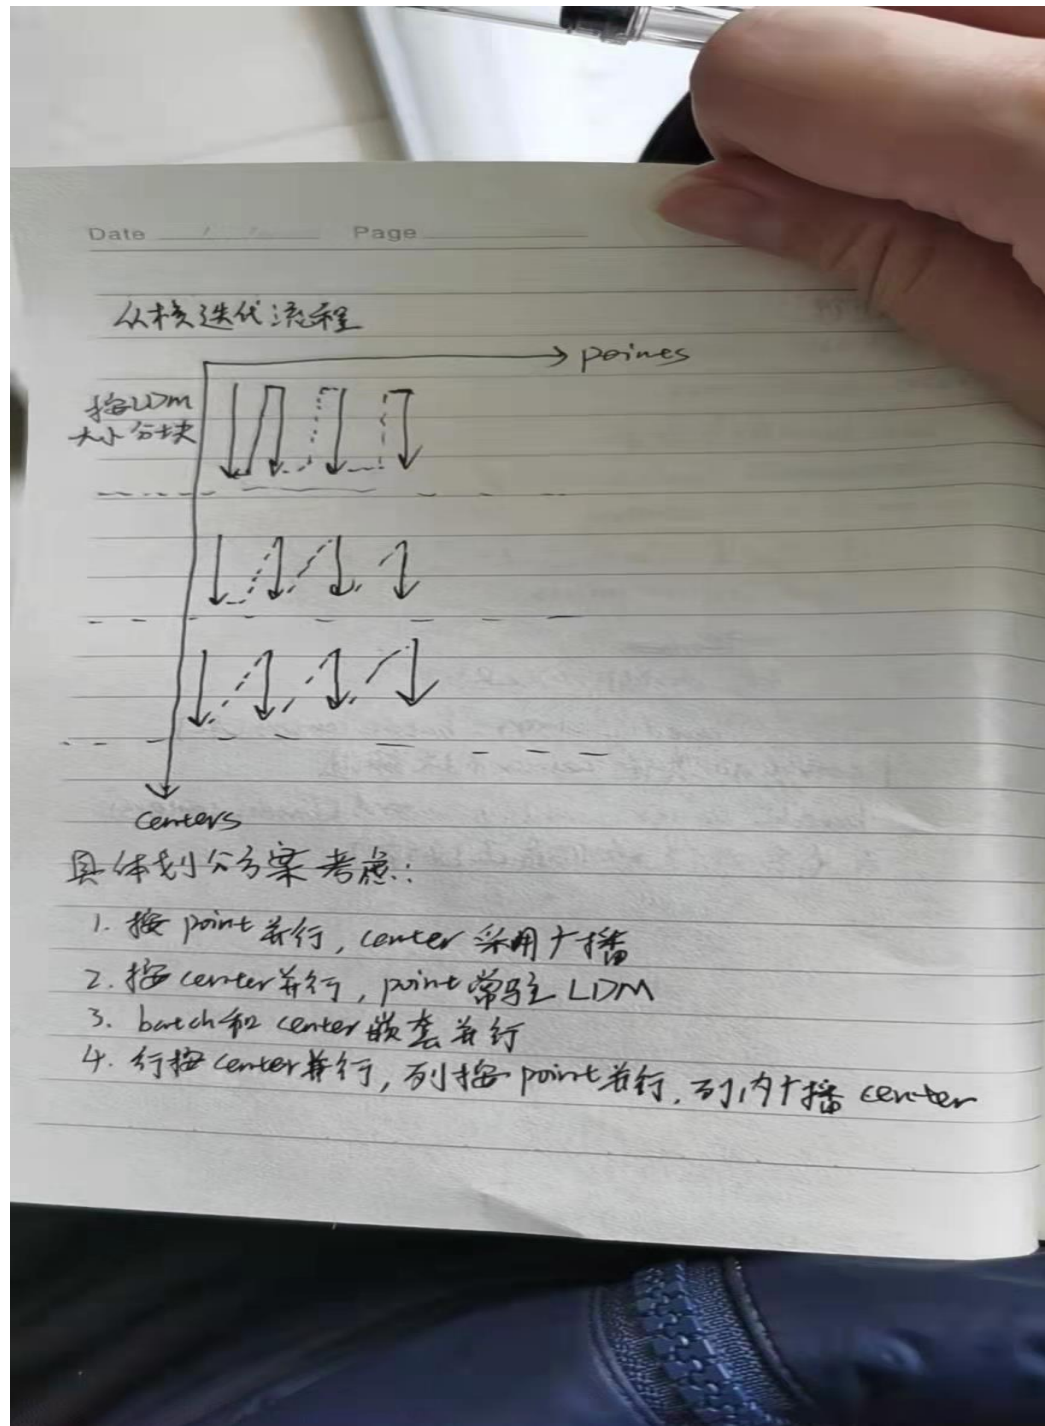 Date / / Page
从核迭代流程
points
按LDM
大小分块
centers
具体划分方案考虑:
1. 按point并行, center采用广播
2. 按center并行, point常驻LDM
3. batch和center嵌套并行
4. 行按center并行, 列按point并行, 列内广播center